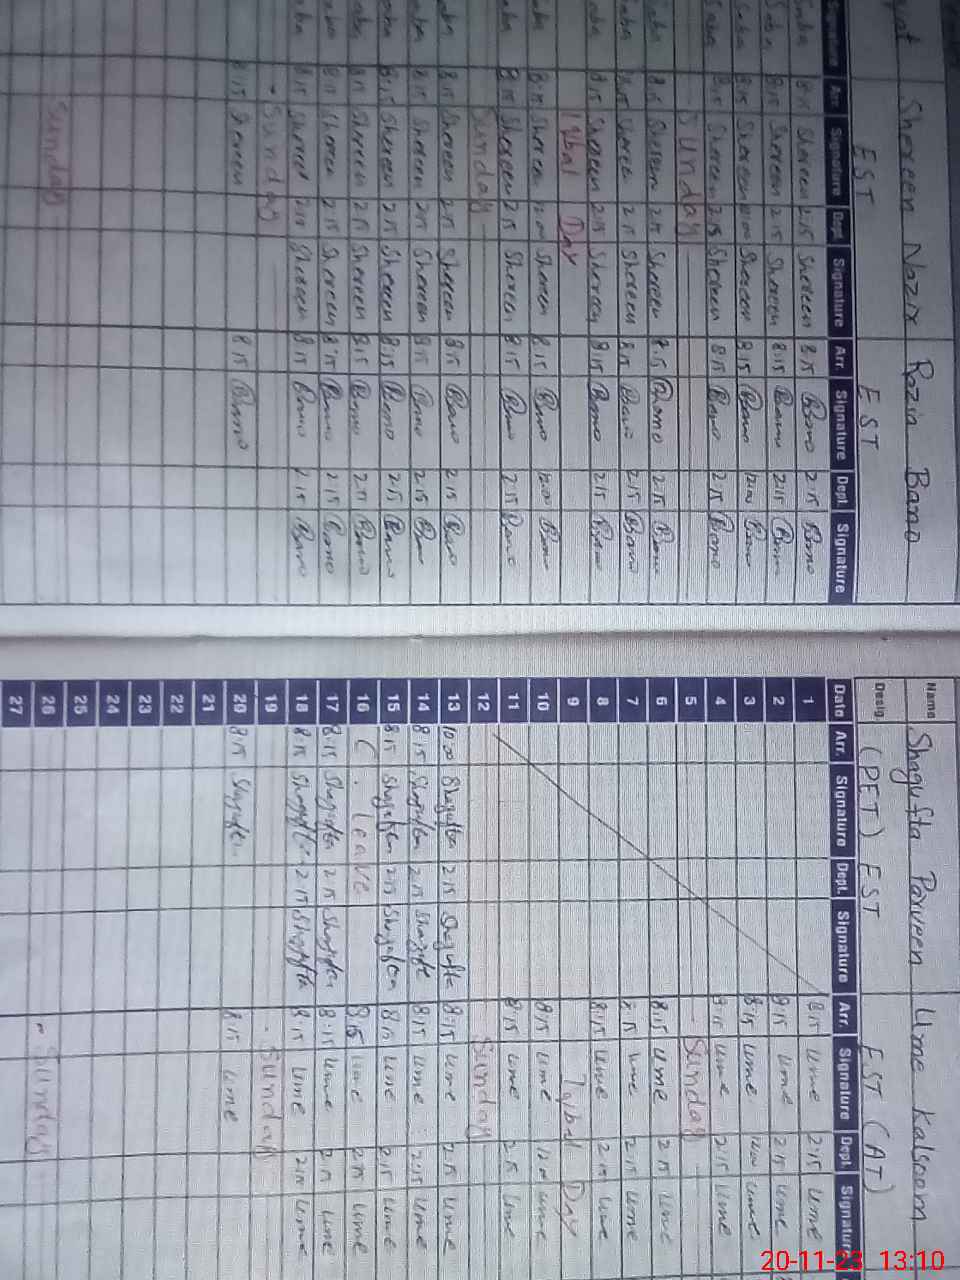 Shereen Nazir Razia Bano
EST EST
Signature Arr. Signature Dept. Signature Arr. Signature Dept. Signature
Saba 8:15 Shereen 2:15 Shereen 8:15 Bano 2:15 Bano
Saba 8:15 Shereen 2:15 Shereen 8:15 Bano 2:15 Bano
Saba 8:15 Shereen 12:00 Shereen 8:15 Bano 12:00 Bano
Saba 8:15 Shereen 2:15 Shereen 8:15 Bano 2:15 Bano
Sunday
Saba 8:15 Shereen 2:15 Shereen 8:15 Bano 2:15 Bano
Saba 8:15 Shereen 2:15 Shereen 8:15 Bano 2:15 Bano
Saba 8:15 Shereen 2:15 Shereen 8:15 Bano 2:15 Bano
Iqbal Day
Saba 8:15 Shereen 12:00 Shereen 8:15 Bano 12:00 Bano
Saba 8:15 Shereen 2:15 Shereen 8:15 Bano 2:15 Bano
Sunday
Saba 8:15 Shereen 2:15 Shereen 8:15 Bano 2:15 Bano
Saba 8:15 Shereen 2:15 Shereen 8:15 Bano 2:15 Bano
Saba 8:15 Shereen 2:15 Shereen 8:15 Bano 2:15 Bano
Saba 8:15 Shereen 2:15 Shereen 8:15 Bano 2:15 Bano
Saba 8:15 Shereen 2:15 Shereen 8:15 Bano 2:15 Bano
Saba 8:15 Shereen 2:15 Shereen 8:15 Bano 2:15 Bano
Sunday
8:15 Shereen 8:15 Bano
Sunday
Name Shagufta Parveen Ume Kalsoom
Desig. (PET) EST EST (AT)
Date Arr. Signature Dept. Signature Arr. Signature Dept. Signature
1 8:15 Ume 2:15 Ume
2 8:15 Ume 2:15 Ume
3 8:15 Ume 12:00 Ume
4 8:15 Ume 2:15 Ume
5 Sunday
6 8:15 Ume 2:15 Ume
7 8:15 Ume 2:15 Ume
8 8:15 Ume 2:15 Ume
9 Iqbal Day
10 8:15 Ume 12:00 Ume
11 8:15 Ume 2:15 Ume
12 Sunday
13 10:00 Shagufta 2:15 Shagufta 8:15 Ume 2:15 Ume
14 8:15 Shagufta 2:15 Shagufta 8:15 Ume 2:15 Ume
15 8:15 Shagufta 2:15 Shagufta 8:15 Ume 2:15 Ume
16 C. leave 8:15 Ume 2:15 Ume
17 8:15 Shagufta 2:15 Shagufta 8:15 Ume 2:15 Ume
18 8:15 Shagufta 2:15 Shagufta 8:15 Ume 2:15 Ume
19 Sunday
20 8:15 Shagufta 8:15 Ume
21
22
23
24
25
26 Sunday
27
20-11-23 13:10